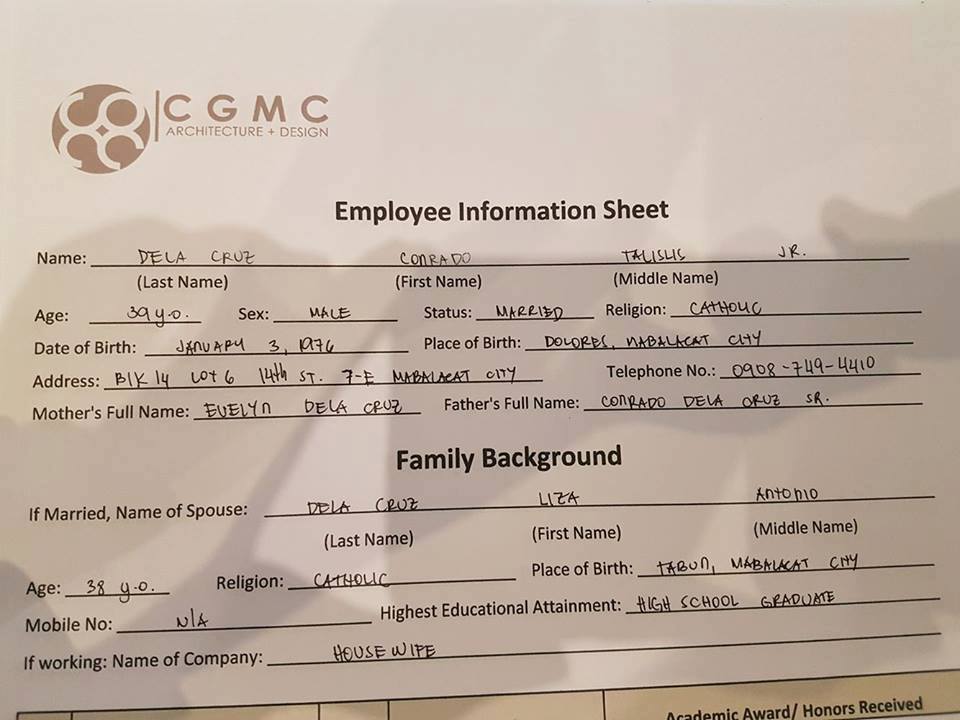 CGMC
ARCHITECTURE + DESIGN
Employee Information Sheet
Name: DELA CRUZ CONRADO TALISLIS JR.
(Last Name) (First Name) (Middle Name)
Age: 39 y.o. Sex: MALE Status: MARRIED Religion: CATHOLIC
Date of Birth: JANUARY 3, 1976 Place of Birth: DOLORES, MABALACAT CITY
Address: Blk 14 LOT 6 14th ST. 7-E MABALACAT CITY Telephone No.: 0908-749-4410
Mother's Full Name: EVELYN DELA CRUZ Father's Full Name: CONRADO DELA CRUZ SR.
Family Background
If Married, Name of Spouse: DELA CRUZ LIZA ANTONIO
(Last Name) (First Name) (Middle Name)
Age: 38 y.o. Religion: CATHOLIC Place of Birth: TABUN, MABALACAT CITY
Mobile No: N/A Highest Educational Attainment: HIGH SCHOOL GRADUATE
If working: Name of Company: HOUSEWIFE
Academic Award/ Honors Received